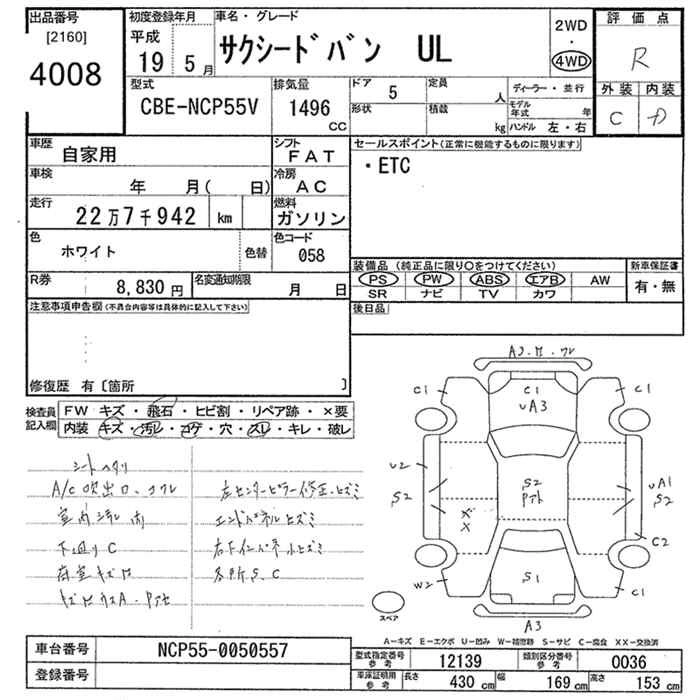 出品番号
[2160]
4008
初度登録年月
平成
19 5月
車名・グレード
サクシードバン UL
2WD
・
4WD
評価点
R
外装 内装
C D
型式
CBE-NCP55V
排気量
1496
CC
ドア 5
形状
定員 人
積載 kg
ディーラー・並行
モデル年式 年
ハンドル 左・右
車歴 自家用
シフト FAT
車検 年 月( 日)
冷房 AC
走行 22万7千942 km
燃料 ガソリン
色 ホワイト 色替
色コード 058
R券 8,830 円
名変通知期限 月 日
セールスポイント(正常に機能するものに限ります)
・ETC
装備品 (純正品に限り〇をつけてください)
新車保証書
PS PW ABS エアB AW
有・無
SR ナビ TV カワ
後日品
注意事項申告欄(不具合内容等は具体的に記入して下さい)
修復歴 有〔箇所 〕
検査員記入欄
FW キズ・飛石・ヒビ割・リペア跡・×要
内装 キズ・汚レ・コゲ・穴・スレ・キレ・破レ
A/C吹出口
下廻りC
エンドパネルヒズミ
各所S、C
C1
C1
C1
UA3
U2
S2
S2
Pアト
UA1
S2
C2
W2
S1
C1
A3
スペア
A−キズ E−エクボ U−凹み W−補修跡 S−サビ C−腐食 XX−交換済
車台番号 NCP55-0050557
登録番号
型式指定番号参考 12139
類別区分番号参考 0036
車庫証明用参考 長さ 430 cm 幅 169 cm 高さ 153 cm